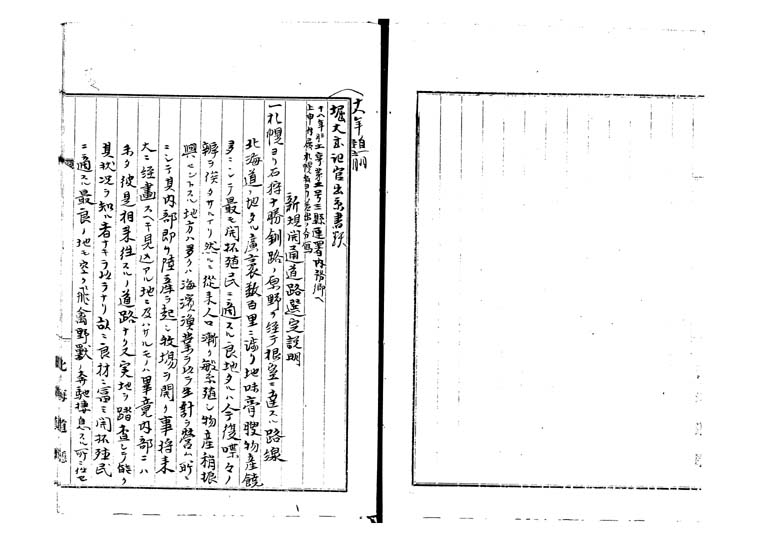 堀大書記官出京書類
新規開通道路選定説明
一札幌ヨリ石狩十勝釧路ノ原野ヲ経テ根室ニ達スル路線
北海道ノ地タル廣袤数百里ニ渉リ地味膏腴物産饒
多ニシテ最モ開拓殖民ニ適スル良地タルハ今復喋々ノ
辨ヲ俟タサルナリ然ルニ從来人口漸ク繁殖シ物産稍振
興セントスル地方ハ多クハ海濱漁業ヲ以テ生計ヲ営ム所ニ
シテ其内部即チ陸産ヲ起シ牧場ヲ開ク事将来
大ニ経畫スヘキ見込アル地ニ及ハサルモノハ畢竟内部ニハ
未タ彼是相来往スルノ道路ナク又実地ヲ踏査シテ能ク
其状況ヲ知ル者ナキヲ以テナリ故ニ良材ニ富ミ開拓殖民
ニ適スル最良ノ地モ空ク飛禽野獣ノ奔馳棲息スル所ニ任セ
北海道廳